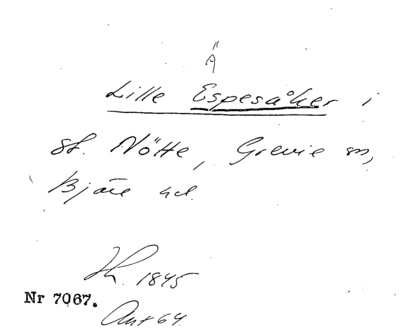 Ä
Lille Espesåker i
St. Nötte, Grevie sn,
Bjäre hd.
Lh. 1845
Nr 7067.
Ant 64